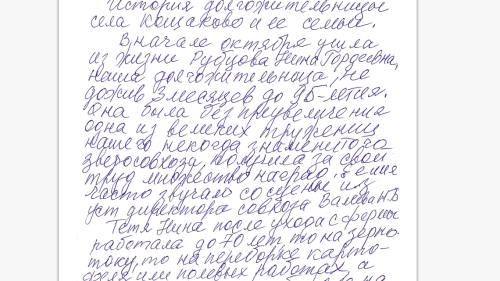 История долгожительницы
села Кощаково и ее семьи.
В начале октября ушла
из жизни Рубцова Нина Гордеевна,
наша долгожительница, не
дожив 3 месяцев до 95-летия.
Она была без преувеличения
одна из великих тружениц
нашего некогда знаменитого
зверосовхоза, получила за свой
труд множество наград. Её имя
часто звучало со сцены из
уст директора совхоза Валеева Н.В
Тетя Нина после ухода с фермы
работала до 70 лет то на зерно-
току, то на переборке карто-
феля или полевых работах, а
на